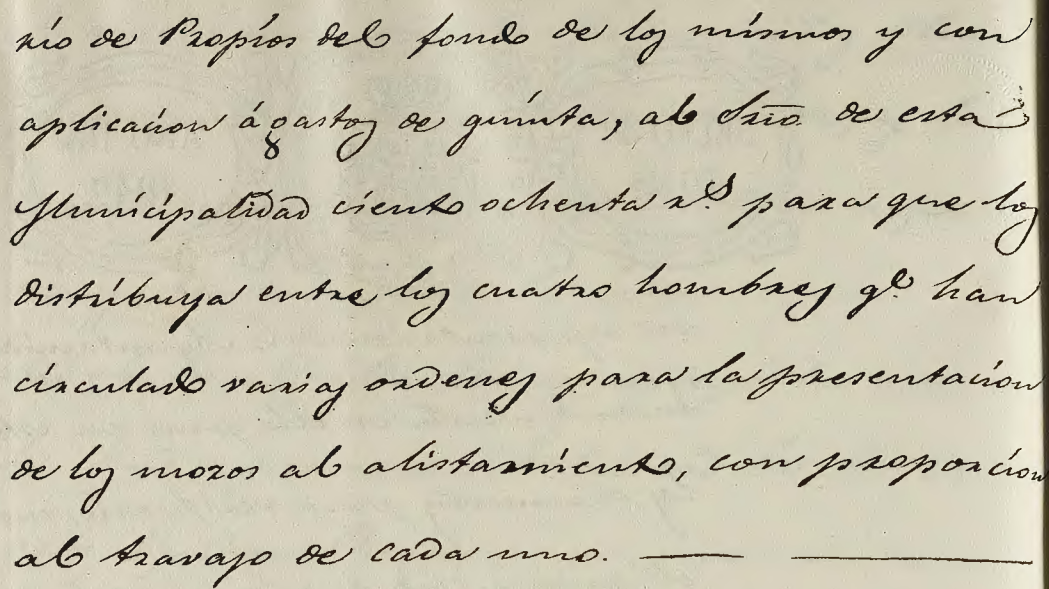 rio de Propios del fondo de los mismos y con
aplicacion á gastos de quinta, al Srio. de esta
Municipalidad ciento ochenta rs. para que los
distribuya entre los cuatro hombres qe. han
circulado varias ordenes para la presentacion
de los mozos al alistamiento, con proporcion
al travajo de cada uno.